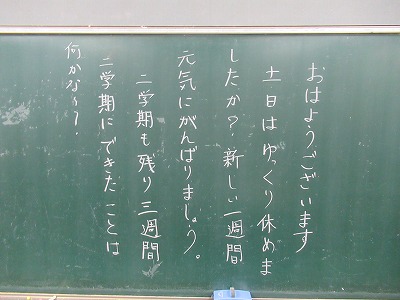 おはようございます
土日はゆっくり休めま
したか?新しい一週間
元気にがんばりましょう。
二学期も残り三週間
二学期にできたことは
何かな??